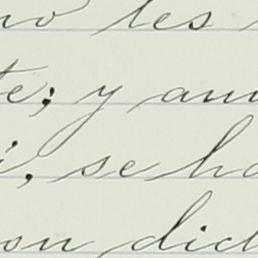 no les
te; y aun
i, se ha
on did